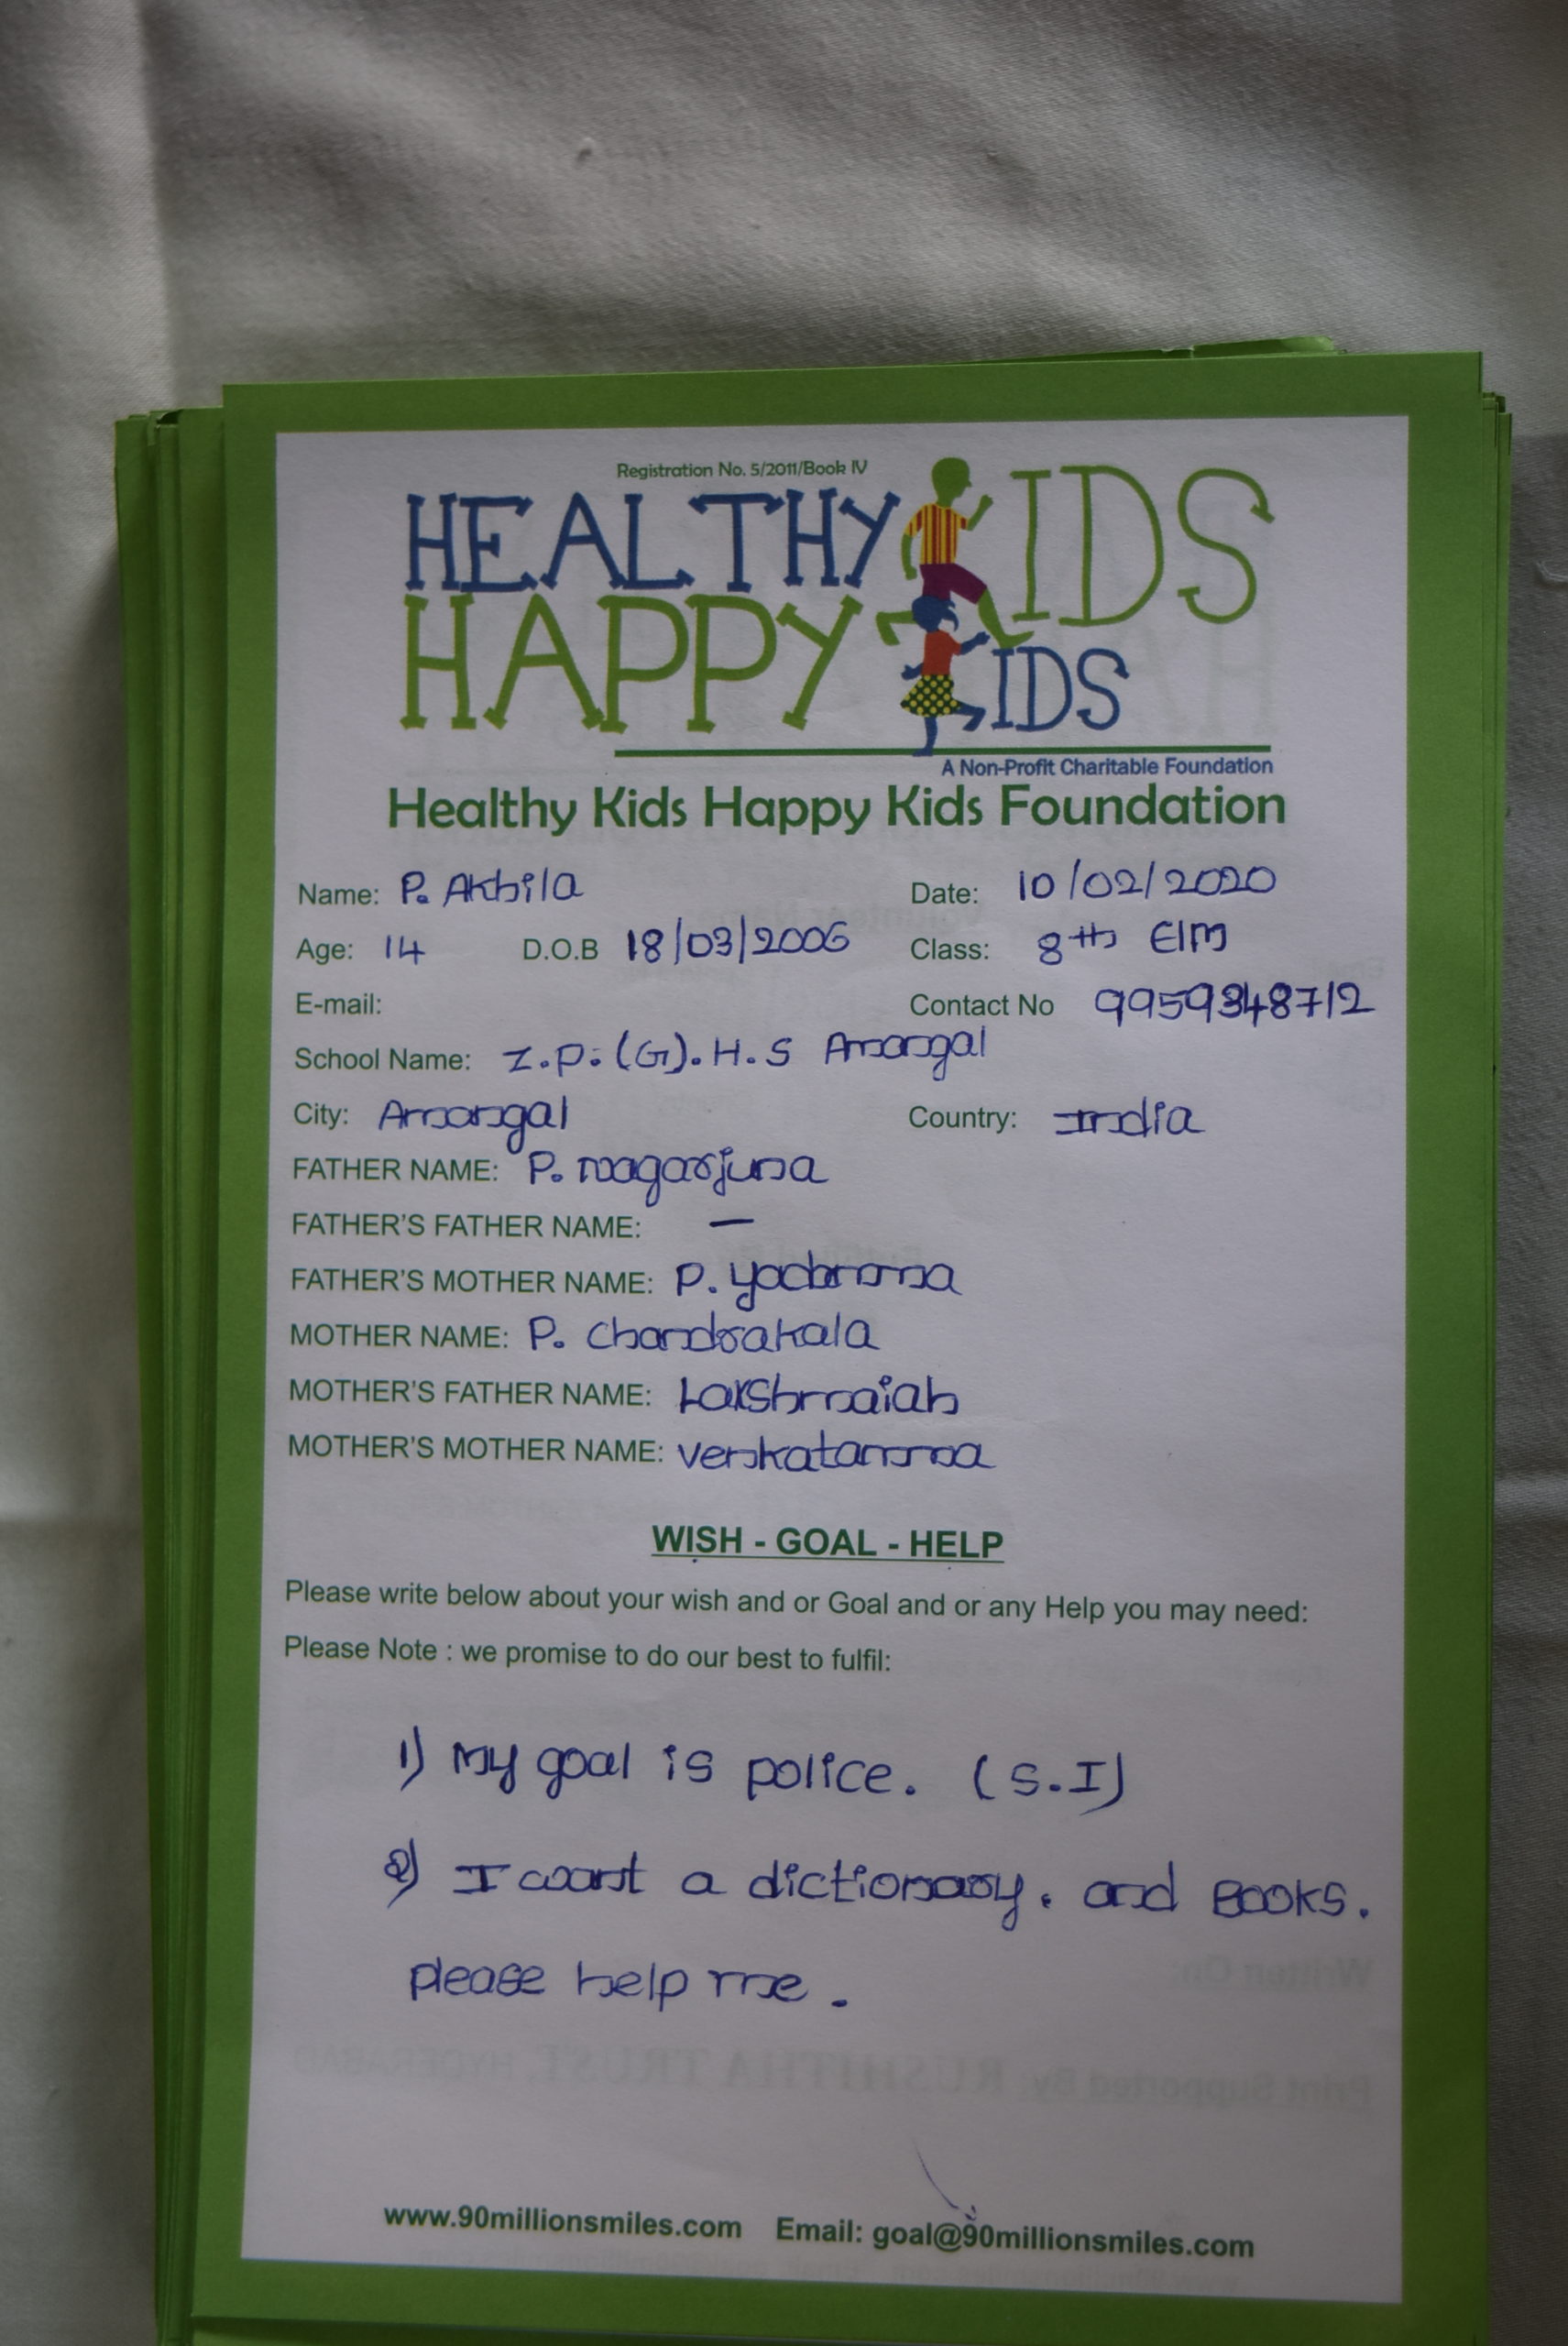 Registration No. 5/2011/Book IV
HEALTHY KIDS
HAPPY KIDS
A Non-Profit Charitable Foundation
Healthy Kids Happy Kids Foundation
Name: P. Akhila Date: 10/02/2020
Age: 14 D.O.B 18/03/2006 Class: 8th E/M
E-mail: Contact No 9959348712
School Name: Z.P.(G).H.S Amangal
City: Amangal Country: India
FATHER NAME: P. nagarjuna
FATHER'S FATHER NAME: —
FATHER'S MOTHER NAME: P.
MOTHER NAME: P. Chandrakala
MOTHER'S FATHER NAME: Lakshmaiah
MOTHER'S MOTHER NAME: Venkatamma
WISH - GOAL - HELP
Please write below about your wish and or Goal and or any Help you may need:
Please Note : we promise to do our best to fulfil:
1) My goal is police. (S.I)
2) I want a dictionary. and Books.
please help me.
Written On:
Print Supported By: RUSHITHA TRUST, HYDERABAD
www.90millionsmiles.com Email: goal@90millionsmiles.com